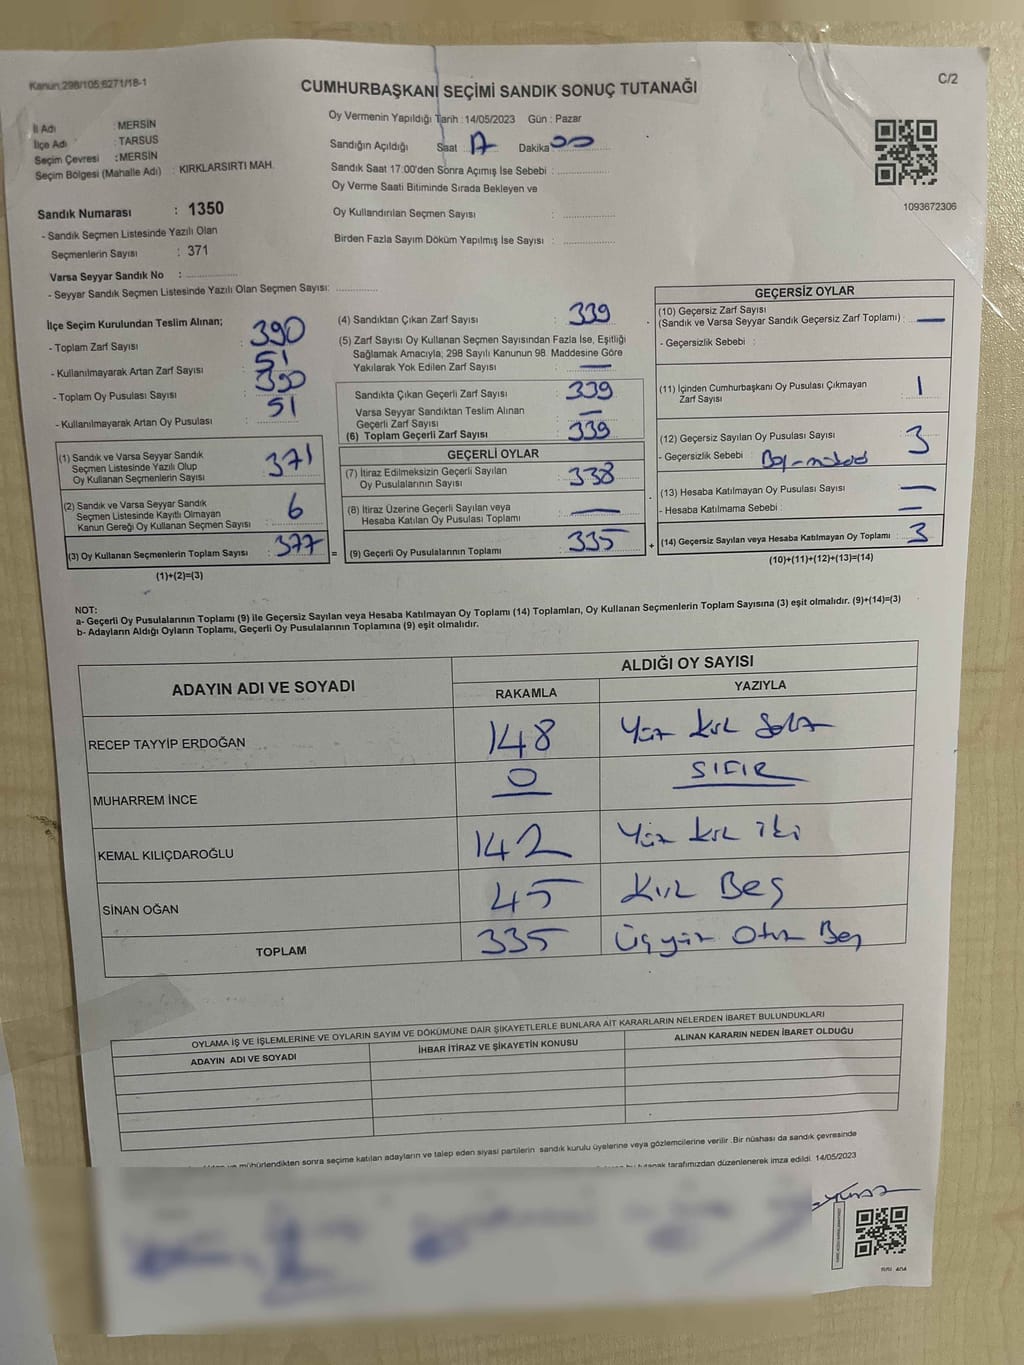 Kanun:298/105;6271/18-1
C/2
CUMHURBAŞKANI SEÇİMİ SANDIK SONUÇ TUTANAĞI
İl Adı : MERSİN
İlçe Adı : TARSUS
Seçim Çevresi : MERSİN
Seçim Bölgesi (Mahalle Adı) : KIRKLARSIRTI MAH.
Oy Vermenin Yapıldığı Tarih :14/05/2023 Gün : Pazar
Sandığın Açıldığı Saat Dakika
Sandık Saat 17:00'den Sonra Açımış İse Sebebi :
Oy Verme Saati Bitiminde Sırada Bekleyen ve
Oy Kullandırılan Seçmen Sayısı :
Birden Fazla Sayım Döküm Yapılmış İse Sayısı :
1093672306
Sandık Numarası : 1350
- Sandık Seçmen Listesinde Yazılı Olan
Seçmenlerin Sayısı : 371
Varsa Seyyar Sandık No :
- Seyyar Sandık Seçmen Listesinde Yazılı Olan Seçmen Sayısı:
İlçe Seçim Kurulundan Teslim Alınan;
- Toplam Zarf Sayısı : 390
- Kullanılmayarak Artan Zarf Sayısı : 51
- Toplam Oy Pusulası Sayısı : 390
- Kullanılmayarak Artan Oy Pusulası : 51
(1) Sandık ve Varsa Seyyar Sandık
Seçmen Listesinde Yazılı Olup
Oy Kullanan Seçmenlerin Sayısı : 371
(2) Sandık ve Varsa Seyyar Sandık
Seçmen Listesinde Kayıtlı Olmayan
Kanun Gereği Oy Kullanan Seçmen Sayısı : 6
(3) Oy Kullanan Seçmenlerin Toplam Sayısı : 377
(1)+(2)=(3)
(4) Sandıktan Çıkan Zarf Sayısı : 339
(5) Zarf Sayısı Oy Kullanan Seçmen Sayısından Fazla İse, Eşitliği
Sağlamak Amacıyla; 298 Sayılı Kanunun 98. Maddesine Göre
Yakılarak Yok Edilen Zarf Sayısı : —
Sandıkta Çıkan Geçerli Zarf Sayısı : 339
Varsa Seyyar Sandıktan Teslim Alınan
Geçerli Zarf Sayısı : —
(6) Toplam Geçerli Zarf Sayısı : 339
GEÇERLİ OYLAR
(7) İtiraz Edilmeksizin Geçerli Sayılan
Oy Pusulalarının Sayısı : 338
(8) İtiraz Üzerine Geçerli Sayılan veya
Hesaba Katılan Oy Pusulası Toplamı : —
= (9) Geçerli Oy Pusulalarının Toplamı : 335
GEÇERSİZ OYLAR
(10) Geçersiz Zarf Sayısı
(Sandık ve Varsa Seyyar Sandık Geçersiz Zarf Toplamı) : —
- Geçersizlik Sebebi :
(11) İçinden Cumhurbaşkanı Oy Pusulası Çıkmayan
Zarf Sayısı : 1
(12) Geçersiz Sayılan Oy Pusulası Sayısı : 3
- Geçersizlik Sebebi :
(13) Hesaba Katılmayan Oy Pusulası Sayısı : —
- Hesaba Katılmama Sebebi : —
+ (14) Geçersiz Sayılan veya Hesaba Katılmayan Oy Toplamı : 3
(10)+(11)+(12)+(13)=(14)
NOT:
a- Geçerli Oy Pusulalarının Toplamı (9) ile Geçersiz Sayılan veya Hesaba Katılmayan Oy Toplamı (14) Toplamları, Oy Kullanan Seçmenlerin Toplam Sayısına (3) eşit olmalıdır. (9)+(14)=(3)
b- Adayların Aldığı Oyların Toplamı, Geçerli Oy Pusulalarının Toplamına (9) eşit olmalıdır.
ADAYIN ADI VE SOYADI ALDIĞI OY SAYISI
RAKAMLA YAZIYLA
RECEP TAYYİP ERDOĞAN 148 Yüz kırk sekiz
MUHARREM İNCE 0 SIFIR
KEMAL KILIÇDAROĞLU 142 Yüz kırk iki
SİNAN OĞAN 45 Kırk Beş
TOPLAM 335 Üçyüz Otuz Beş
OYLAMA İŞ VE İŞLEMLERİNE VE OYLARIN SAYIM VE DÖKÜMÜNE DAİR ŞİKAYETLERLE BUNLARA AİT KARARLARIN NELERDEN İBARET BULUNDUKLARI
ADAYIN ADI VE SOYADI İHBAR İTİRAZ VE ŞİKAYETİN KONUSU ALINAN KARARIN NEDEN İBARET OLDUĞU
mühürlendikten sonra seçime katılan adayların ve talep eden siyasi partilerin sandık kurulu üyelerine veya gözlemcilerine verilir .Bir nüshası da sandık çevresinde
tutanak tarafımızdan düzenlenerek imza edildi. 14/05/2023